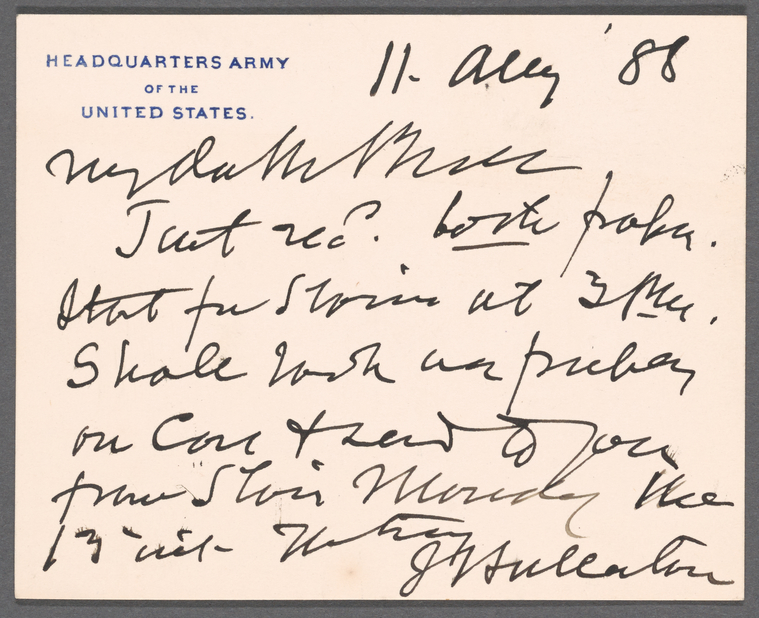 HEADQUARTERS ARMY
OF THE
UNITED STATES.
11. Aug '88
My
Just rec'd. both papers.
Start for St Louis at 3 P.M.
Shall look over papers
on Cars & send to you
from St Louis Monday the
13" inst- Hastily
J S Fullerton